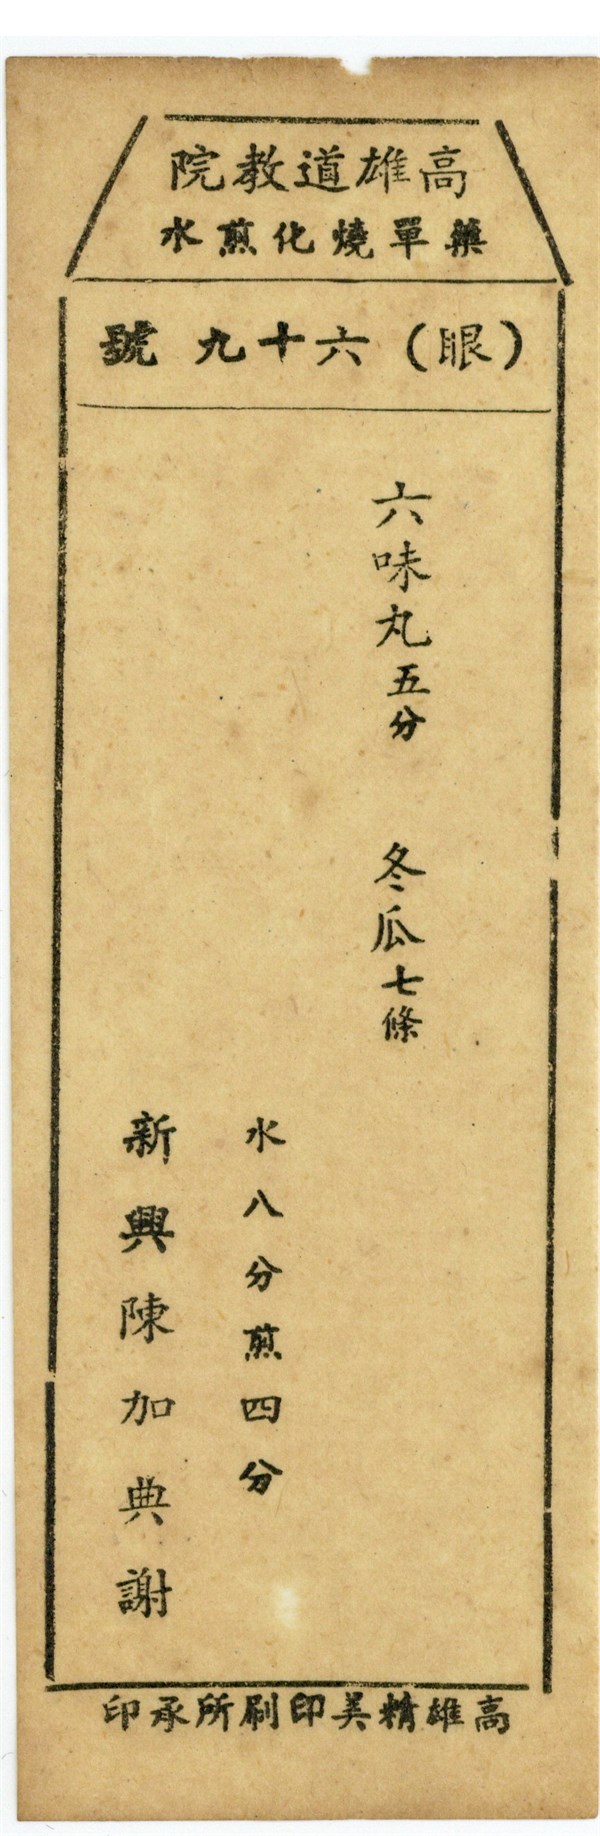 高雄道教院
藥單燒化煎水
(眼)六十九號
六味丸五分 冬瓜七條
水八分煎四分
新興陳加典謝
高雄精美印刷所承印